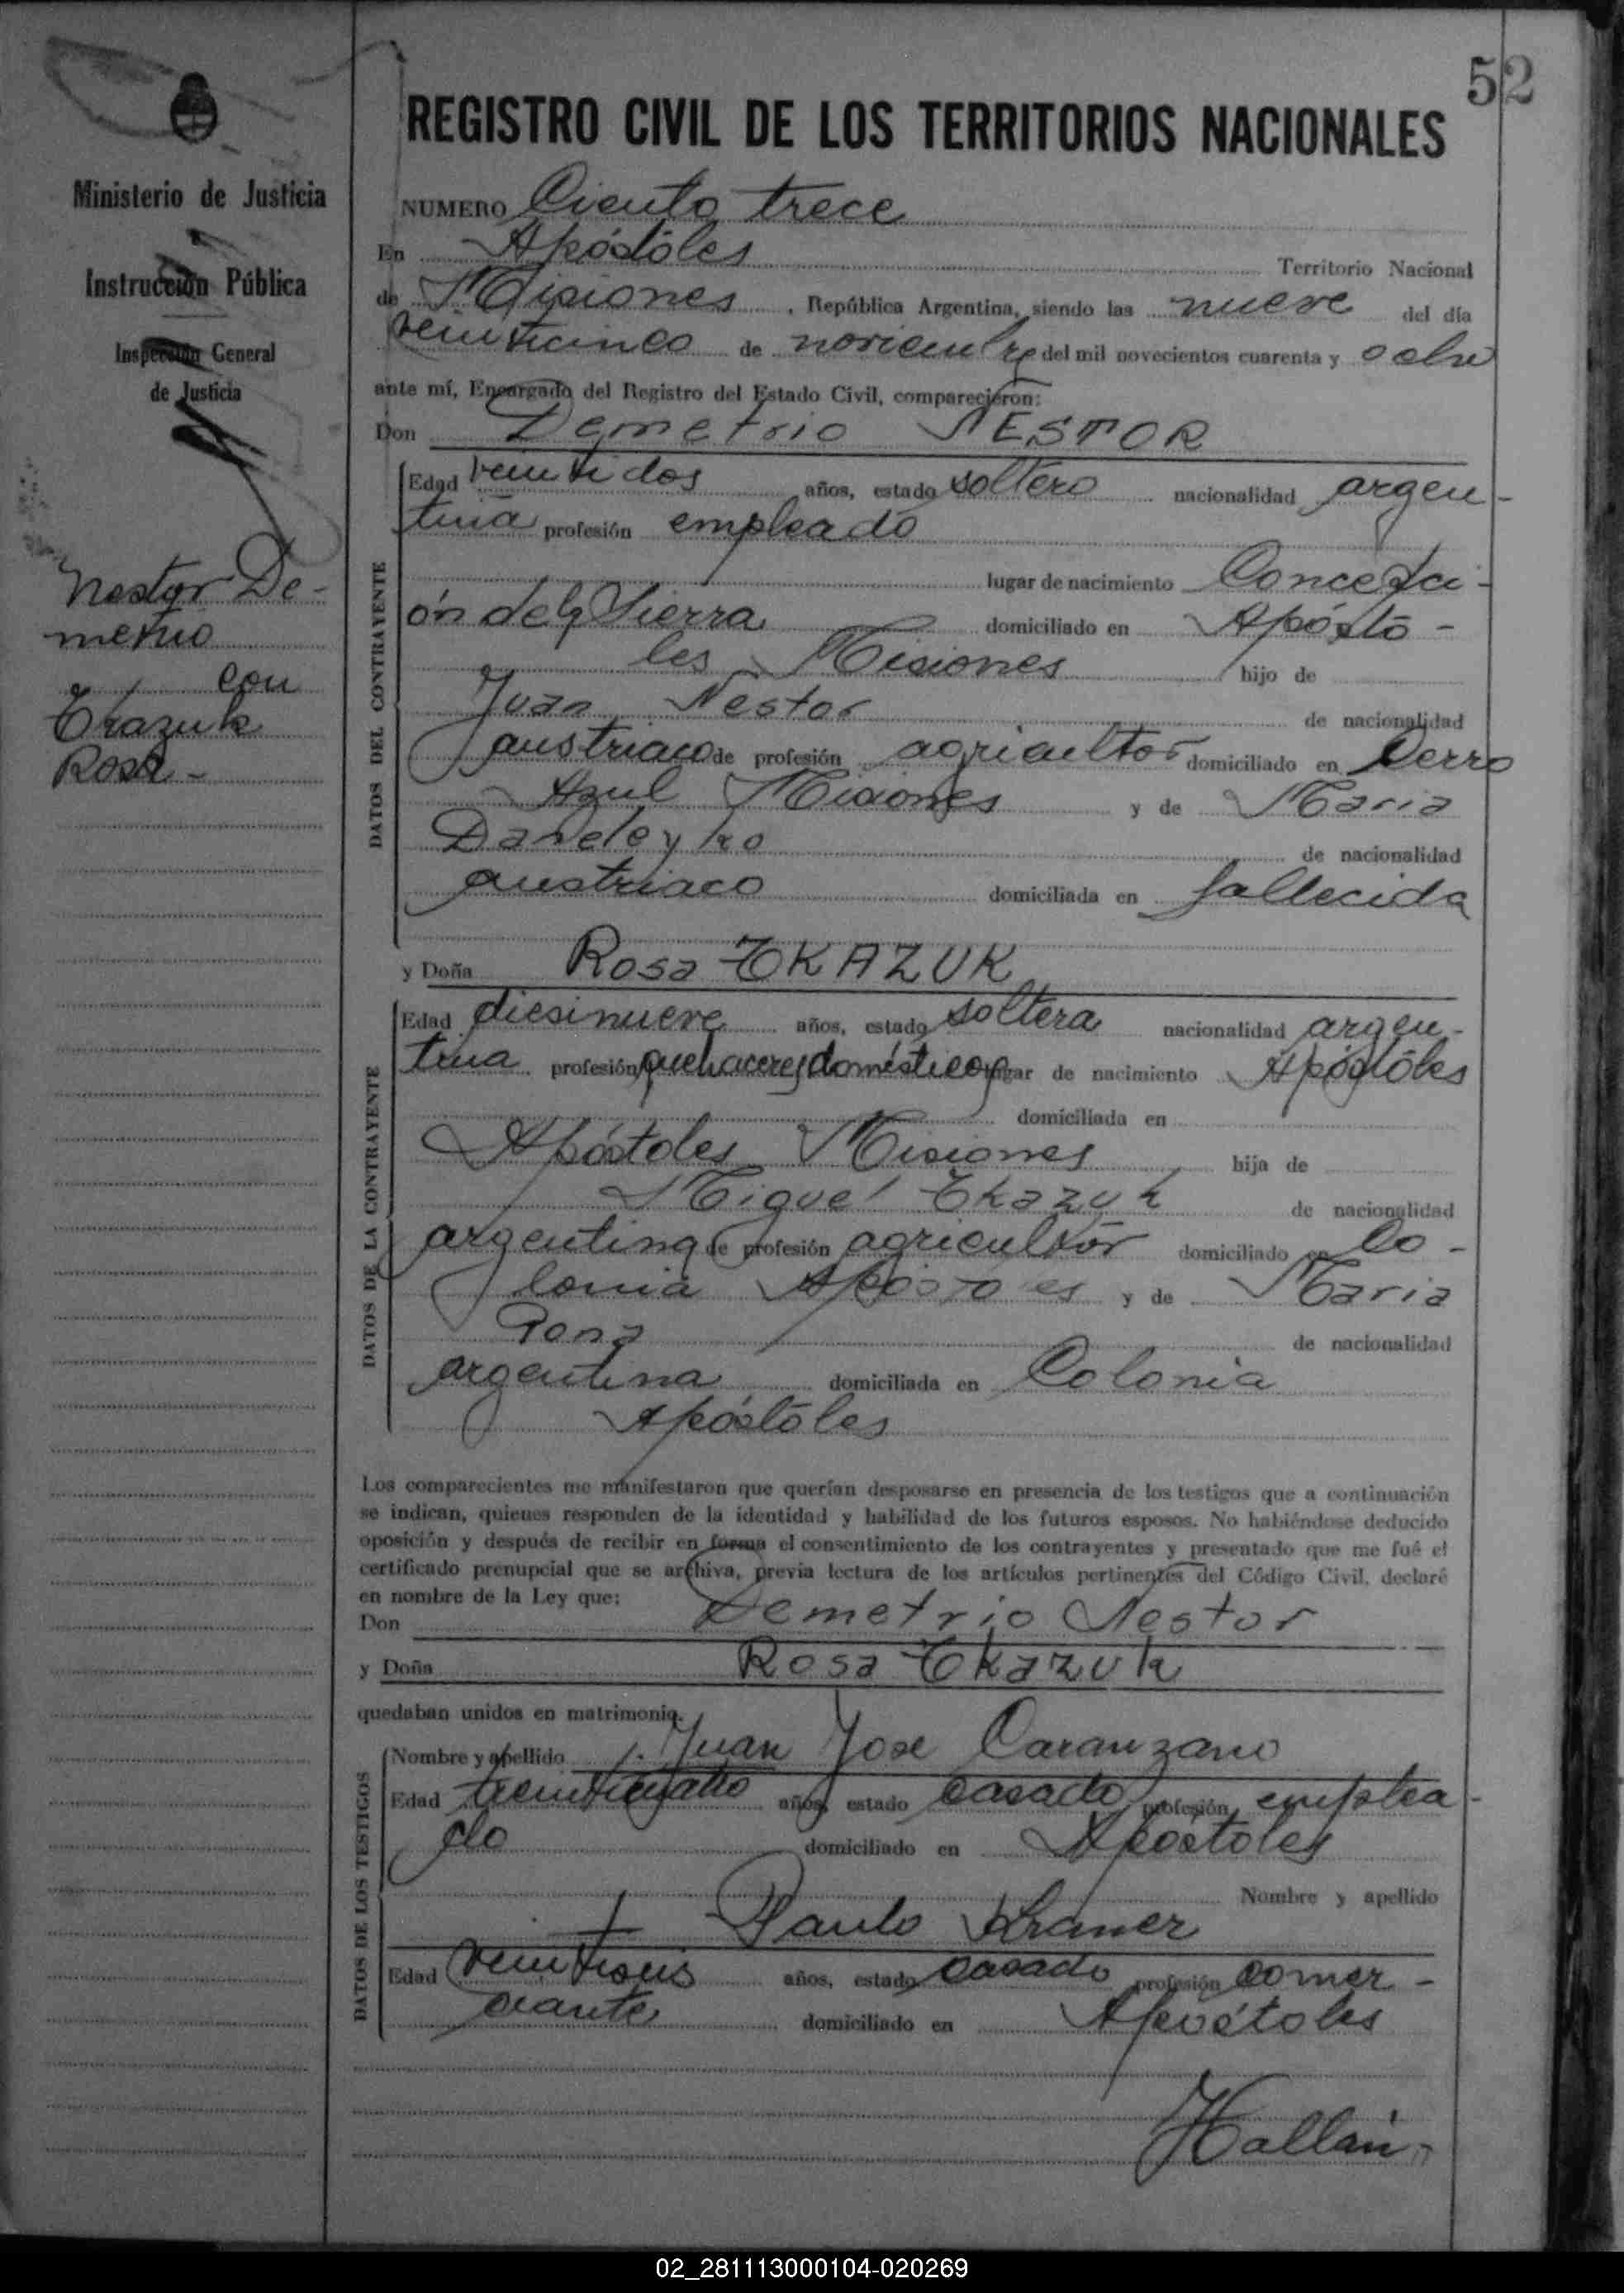 52
REGISTRO CIVIL DE LOS TERRITORIOS NACIONALES
Ministerio de Justicia
Instrucción Pública
Inspección General
de Justicia
Nestor De-
metrio
con
Tkazuk
Rosa -
NUMERO Ciento trece
En Apóstóles Territorio Nacional
de Misiones, República Argentina, siendo las nueve del día
veinticinco de noviembre del mil novecientos cuarenta y ocho
ante mí, Encargado del Registro del Estado Civil, comparecieron:
Don Demetrio NESTOR
DATOS DEL CONTRAYENTE
Edad veintidos años, estado soltero nacionalidad argen-
tina profesión empleado
lugar de nacimiento Concepci-
ón de la Sierra domiciliado en Apósto-
les Misiones hijo de
Juan Nestor de nacionalidad
austriaco de profesión agricultor domiciliado en Cerro
Azul Misiones y de Maria
de nacionalidad
austriaco domiciliada en fallecida
y Doña Rosa TKAZUK
DATOS DE LA CONTRAYENTE
Edad diesinueve años, estado soltera nacionalidad argen-
tina profesión quehaceres domésticos lugar de nacimiento Apóstóles
domiciliada en
Apóstoles Misiones hija de
Miguel Tkazuk de nacionalidad
argentina de profesión agricultor domiciliado en Co-
lonia Apostoles y de Maria
de nacionalidad
argentina domiciliada en Colonia
Apóstóles
Los comparecientes me manifestaron que querían desposarse en presencia de los testigos que a continuación
se indican, quienes responden de la identidad y habilidad de los futuros esposos. No habiéndose deducido
oposición y después de recibir en forma el consentimiento de los contrayentes y presentado que me fué el
certificado prenupcial que se archiva, previa lectura de los artículos pertinentes del Código Civil, declaré
en nombre de la Ley que:
Don Demetrio Nestor
y Doña Rosa Tkazuk
quedaban unidos en matrimonio.
DATOS DE LOS TESTIGOS
Nombre y apellido Juan Jose
Edad treinticuatro años, estado casado profesión emplea-
do domiciliado en Apostoles
Nombre y apellido
Paulo Kramer
Edad veintiseis años, estado casado profesión comer-
ciante domiciliado en Apóstoles
02_281113000104-020269